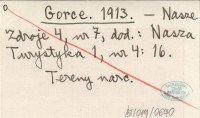 Gorce. 1913. – Nasze
Zdroje 4, nr 7, dod.: Nasza
Turystyka 1, nr 4: 16.
Tereny narc.
b/om/0690